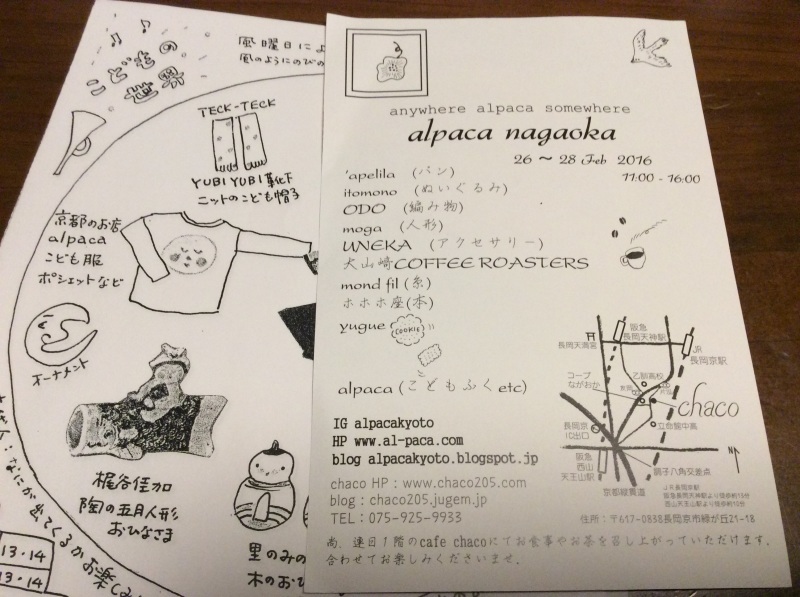 こどもの
世界
風曜日に
風のようにのびの
TECK-TECK
YUBI YUBI 靴下
ニットのこども帽子
京都のお店
alpaca
こども服
ポシェットなど
オーナメント
梶谷佳加
陶の五月人形
おひなさま
里のみの
木のおひ
なにが出てくるかお楽しみ
13・14
13・14
anywhere alpaca somewhere
alpaca nagaoka
26 〜 28 Feb 2016
11:00 - 16:00
'apelila (パン)
itomono (ぬいぐるみ)
ODO (編み物)
moga (人形)
UNEKA (アクセサリー)
大山崎COFFEE ROASTERS
mond fil (糸)
ホホホ座(本)
yugue
COOKIE
alpaca (こどもふくetc)
IG alpacakyoto
HP www.al-paca.com
blog alpacakyoto.blogspot.jp
chaco HP : www.chaco205.com
blog : chaco205.jugem.jp
TEL : 075-925-9933
阪急
長岡天神駅
長岡天満宮
JR
長岡京駅
コープ
ながおか
乙訓高校
chaco
長岡京
IC出口
立命館中高
阪急
西山
天王山駅
調子八角交差点
京都縦貫道
N
JR長岡京駅より徒歩約15分
阪急長岡天神駅より徒歩約15分
西山天王山駅より徒歩約10分
住所:〒617-0838長岡京市緑が丘21-18
尚、連日1階のcafe chacoにてお食事やお茶を召し上がっていただけます。
合わせてお楽しみくださいませ。